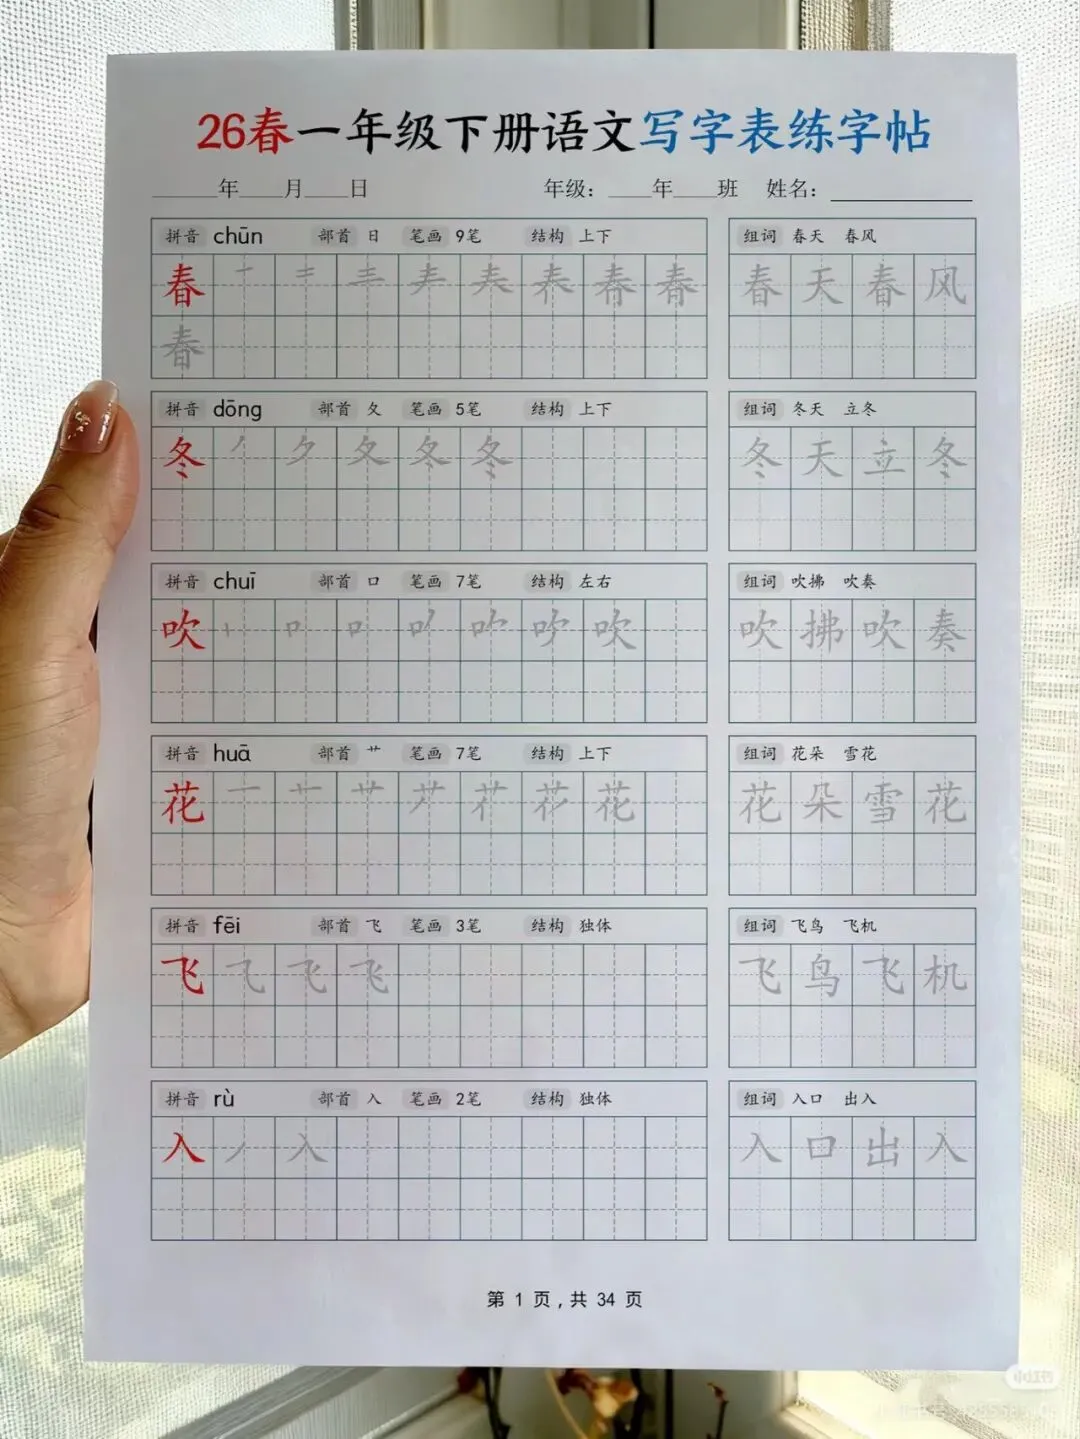 26春一年级下册语文写字表练字帖
______年____月____日 年级：____年____班 姓名：____________
拼音 chūn 部首 日 笔画 9笔 结构 上下 组词 春天 春风
春 春 春 春天春风
春
拼音 dōng 部首 夂 笔画 5笔 结构 上下 组词 冬天 立冬
冬 夂 冬 冬天立冬
拼音 chuī 部首 口 笔画 7笔 结构 左右 组词 吹拂 吹奏
吹 吹 吹拂吹奏
拼音 huā 部首 艹 笔画 7笔 结构 上下 组词 花朵 雪花
花 一 艹 花 花朵雪花
拼音 fēi 部首 飞 笔画 3笔 结构 独体 组词 飞鸟 飞机
飞 飞 飞鸟飞机
拼音 rù 部首 入 笔画 2笔 结构 独体 组词 入口 出入
入 丿 入 入口出入
第 1 页，共 34 页
小红书